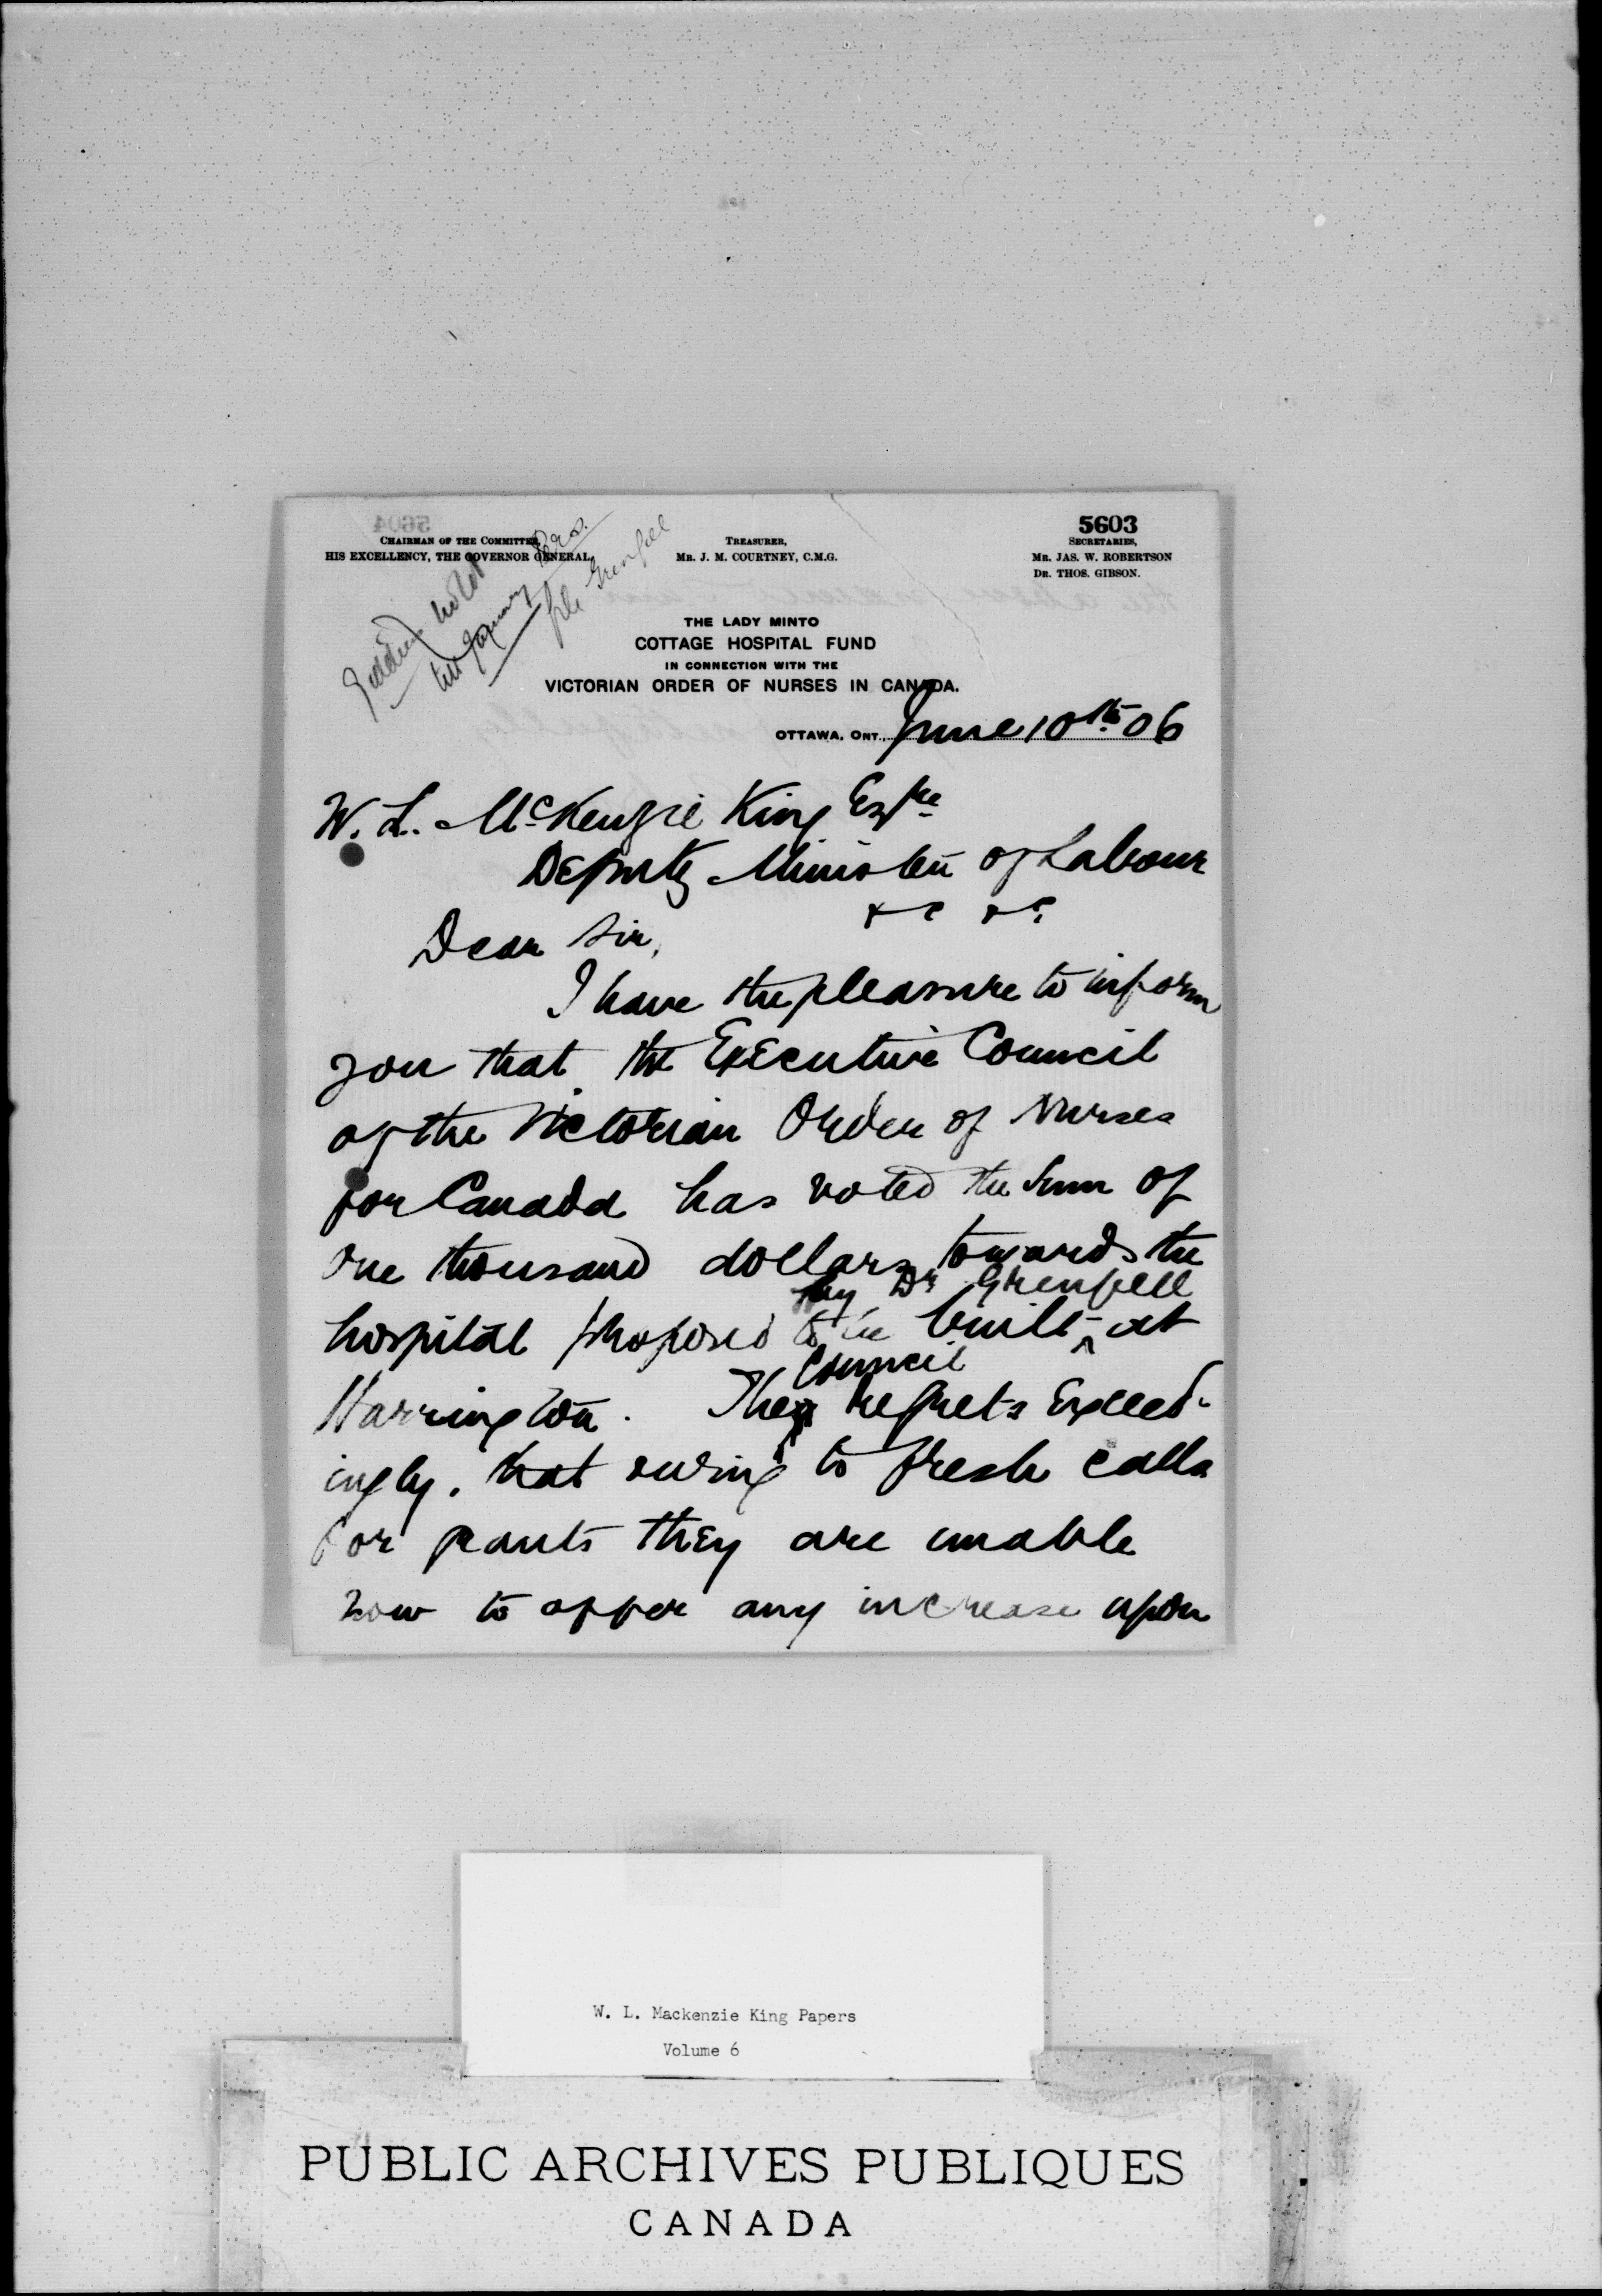 5603
CHAIRMAN OF THE COMMITTEE,
HIS EXCELLENCY, THE GOVERNOR GENERAL.
TREASURER,
MR. J. M. COURTNEY, C.M.G.
SECRETARIES,
MR. JAS. W. ROBERTSON
DR. THOS. GIBSON.
till January
file Grenfell
THE LADY MINTO
COTTAGE HOSPITAL FUND
IN CONNECTION WITH THE
VICTORIAN ORDER OF NURSES IN CANADA.
OTTAWA, ONT., June 10th 06
W. L. McKenzie King Esqre
Deputy Minister of Labour
&c &c
Dear Sir,
I have the pleasure to inform
you that the Executive Council
of the Victorian Order of Nurses
for Canada has voted the sum of
one thousand dollars towards the
by Dr Grenfell
hospital proposed to be built ^ at
Council
Harrington. The regrets exceed-
ingly, that owing to fresh calls
for grants they are unable
now to offer any increase upon
W. L. Mackenzie King Papers
Volume 6
PUBLIC ARCHIVES PUBLIQUES
CANADA